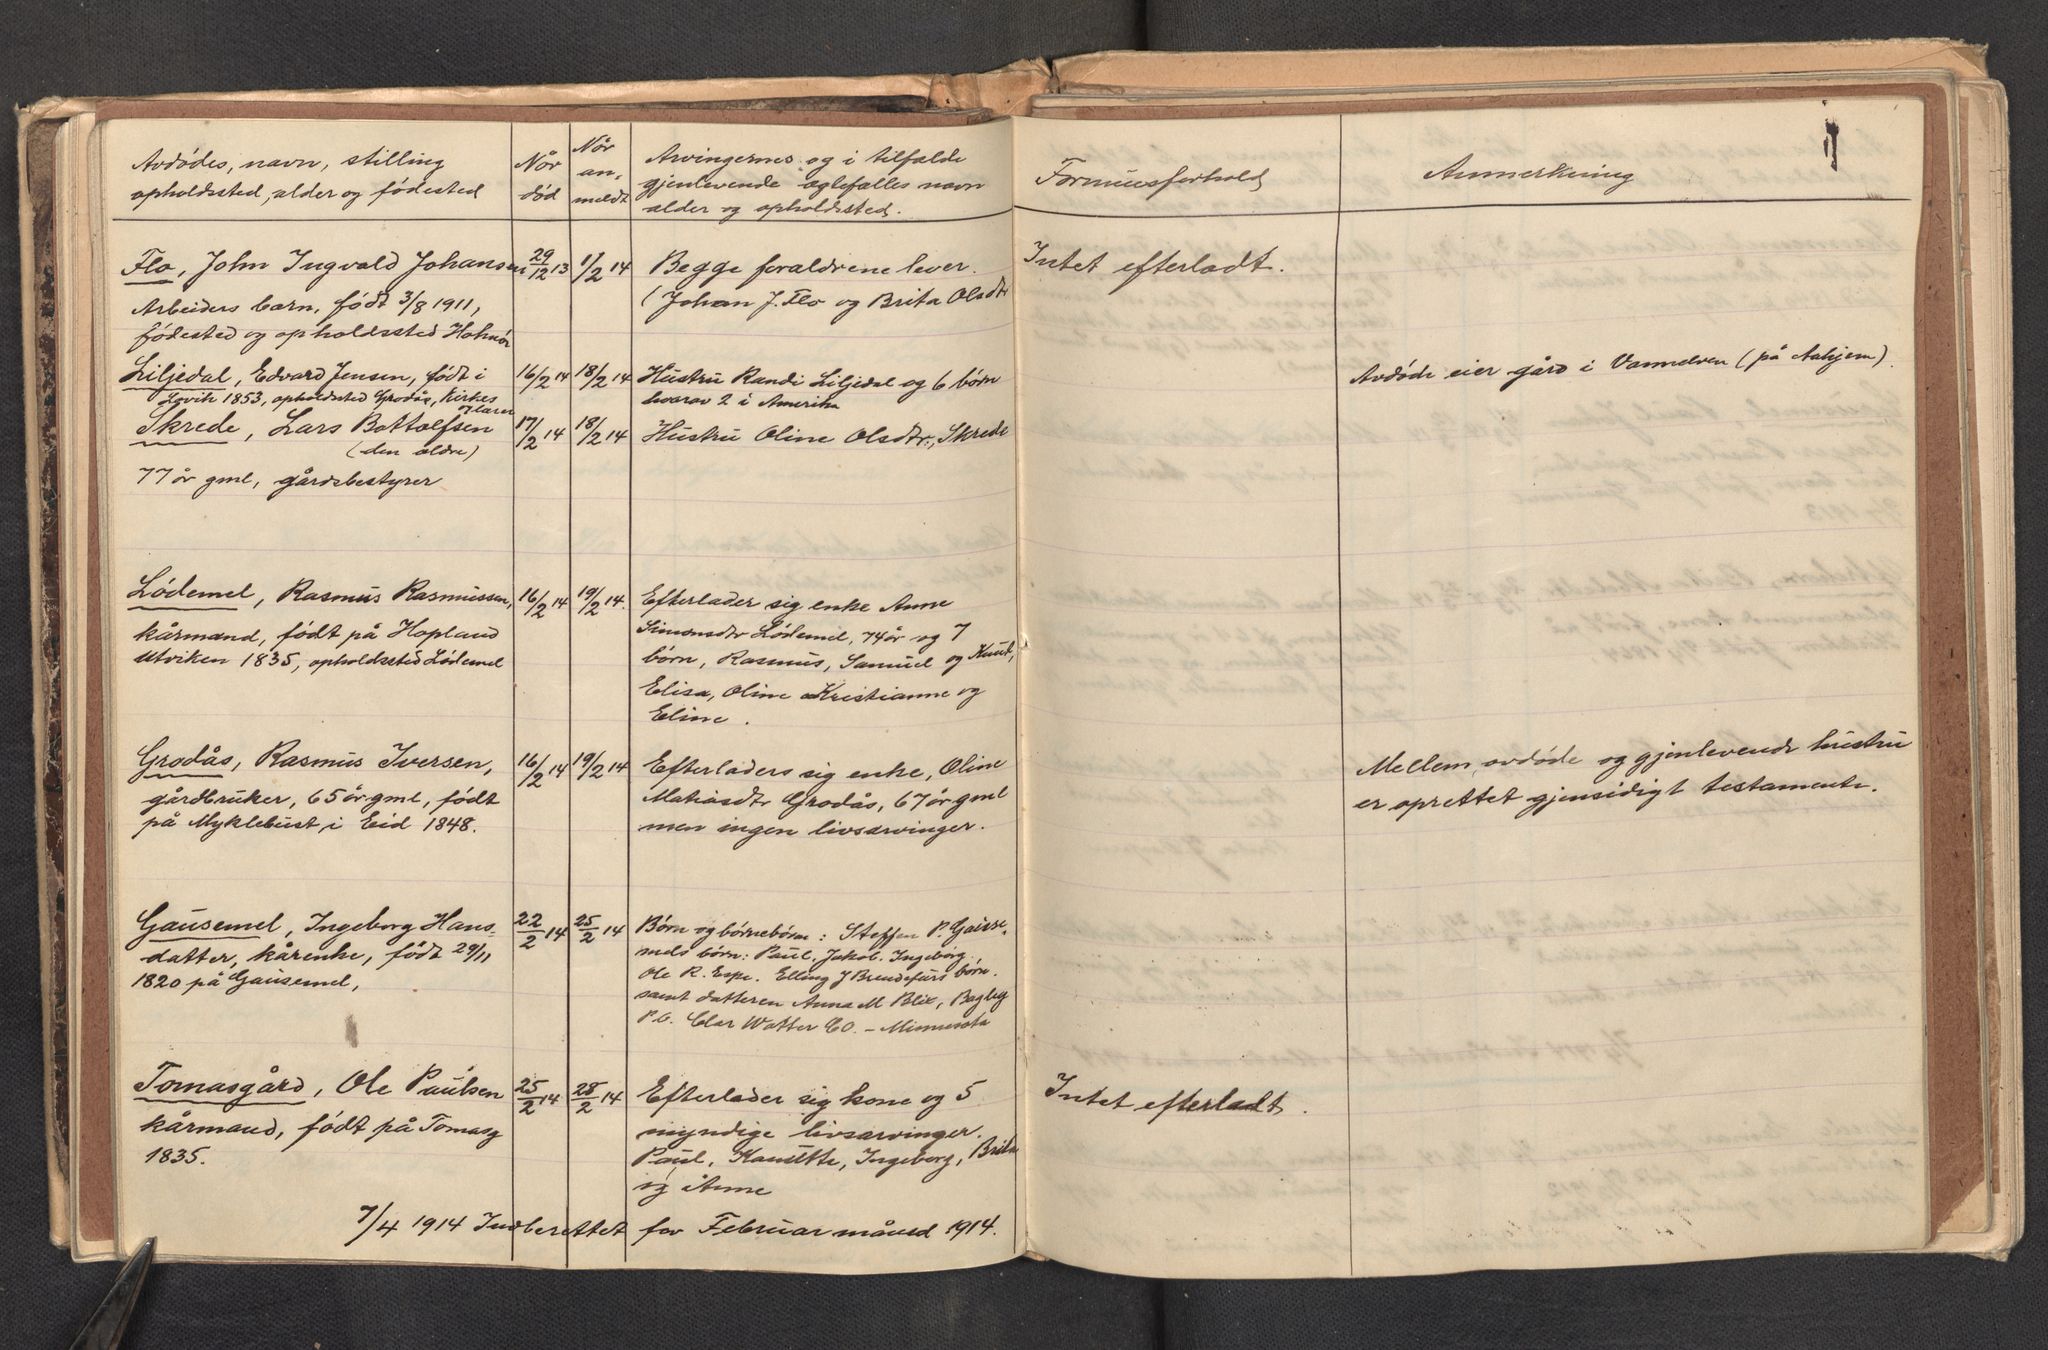 Avdødes, navn, stilling
opholdssted, alder og fødested
Når
død
Når
an-
meldt
Arvingernes og i tilfælde
gjenlevende ægtefælles navn
alder og opholdssted.
Formuesforhold
Anmerkning
Flo, John Ingvald Johansen 29/12 13 1/2 14 Begge foraldrene lever. Intet efterladt.
Arbeiders barn, født 3/8 1911, (Johan J. Flo og Brita Olsdtr
fødested og opholdssted
Liljedal, Edvard Jensen, født i 16/2 14 18/2 14 Hustru Randi Liljedal og 6 børn Avdøde eier gård i Vannelven (på Aahjem).
1853, opholdssted Grodås, Kirkes hvorav 2 i Amerika
Skrede, Lars Bottolfsen 17/2 14 18/2 14 Hustru Oline Olsdtr., Skrede
(den ældre)
77 år gml, gårdsbestyrer
Lødemel, Rasmus Rasmussen, 16/2 14 19/2 14. Efterlader sig enke Anne
kårmand, født på Hopland Simonsdtr Lødemel, 74 år og 7
Utviken 1835, opholdssted Lødemel børn, Rasmus, Samuel og Knut,
Elisa, Oline Kristianne og
Eline.
Grodås, Rasmus Iversen, 16/2 14 19/2 14 Efterladers sig enke, Oline Mellem avdøde og gjenlevende hustru
gårdbruker, 65 år gml, født Matiasdtr Grodås, 67 år gml er oprettet gjensidigt testamente.
på Myklebust i Eid 1848. men ingen livsarvinger.
Gausemel, Ingeborg Hans- 22/2 14 25/2 14 Børn og børnebørn: Steffen P. Gause-
datter, kårenke, født 29/11 mels børn: Paul, Jakob, Ingeborg,
1820 på Gausemel, Ole R. Espe. Elling J børn.
samt datteren Anna M Blix, Bagley
P.O. Clar Watter CO. - Minnesota
Tomasgård, Ole Paulsen 25/2 14 28/2 14 Efterlader sig kone og 5 Intet efterladt.
kårmand, født på Tomasg myndige livsarvinger.
1835. Paul, Ingeborg, Brita
og Anne
7/4 1914 Indberettet for Februar måned 1914.